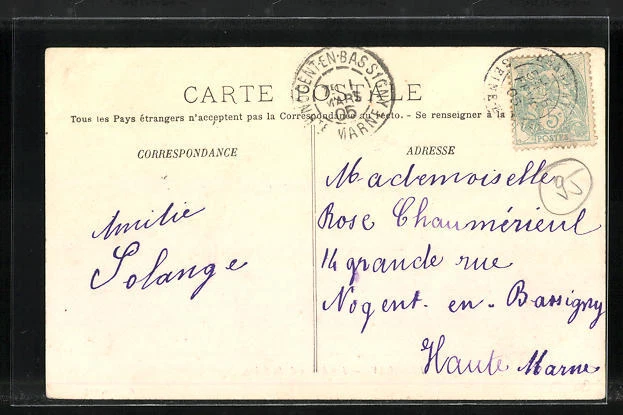 CARTE POSTALE
Tous les Pays étrangers n'acceptent pas la Correspondance au recto. - Se renseigner à la
CORRESPONDANCE
ADRESSE
NOGENT-EN-BASSIGNY
MARS
05
HTE MARNE
5
POSTES
Amitié
Solange
Mademoiselle
Rose Chaumérieul
14 grande rue
Nogent-en-Bassigny
Haute Marne